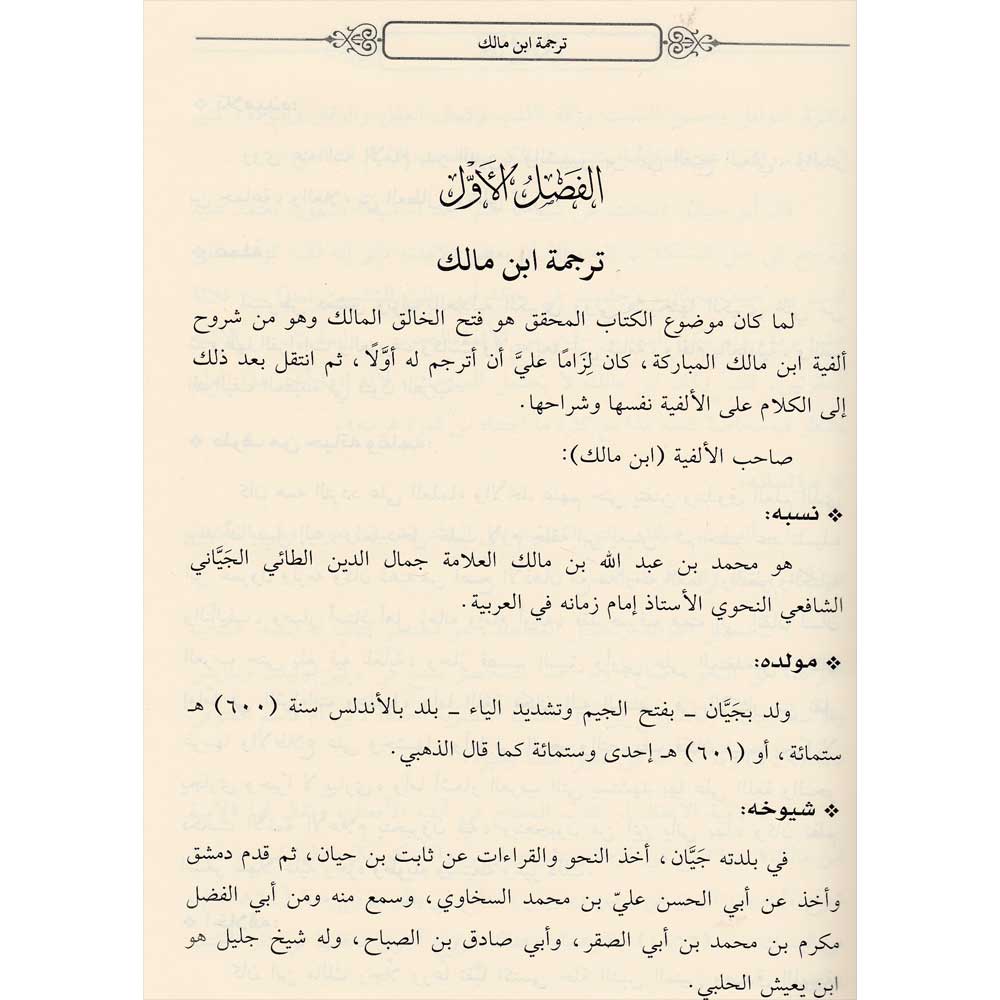 ترجمة ابن مالك
الفصل الأول
ترجمة ابن مالك
لما كان موضوع الكتاب المحقق هو فتح الخالق المالك وهو من شروح
ألفية ابن مالك المباركة، كان لِزَامًا عليَّ أن أترجم له أوَّلًا، ثم انتقل بعد ذلك
إلى الكلام على الألفية نفسها وشراحها.
صاحب الألفية (ابن مالك):
❖ نسبه:
هو محمد بن عبد الله بن مالك العلامة جمال الدين الطائي الجَيَّاني
الشافعي النحوي الأستاذ إمام زمانه في العربية.
❖ مولده:
ولد بجَيَّان ـ بفتح الجيم وتشديد الياء ـ بلد بالأندلس سنة (٦٠٠) هـ
ستمائة، أو (٦٠١) هـ إحدى وستمائة كما قال الذهبي.
❖ شيوخه:
في بلدته جَيَّان، أخذ النحو والقراءات عن ثابت بن حيان، ثم قدم دمشق
وأخذ عن أبي الحسن عليّ بن محمد السخاوي، وسمع منه ومن أبي الفضل
مكرم بن محمد بن أبي الصقر، وأبي صادق بن الصباح، وله شيخ جليل هو
ابن يعيش الحلبي.